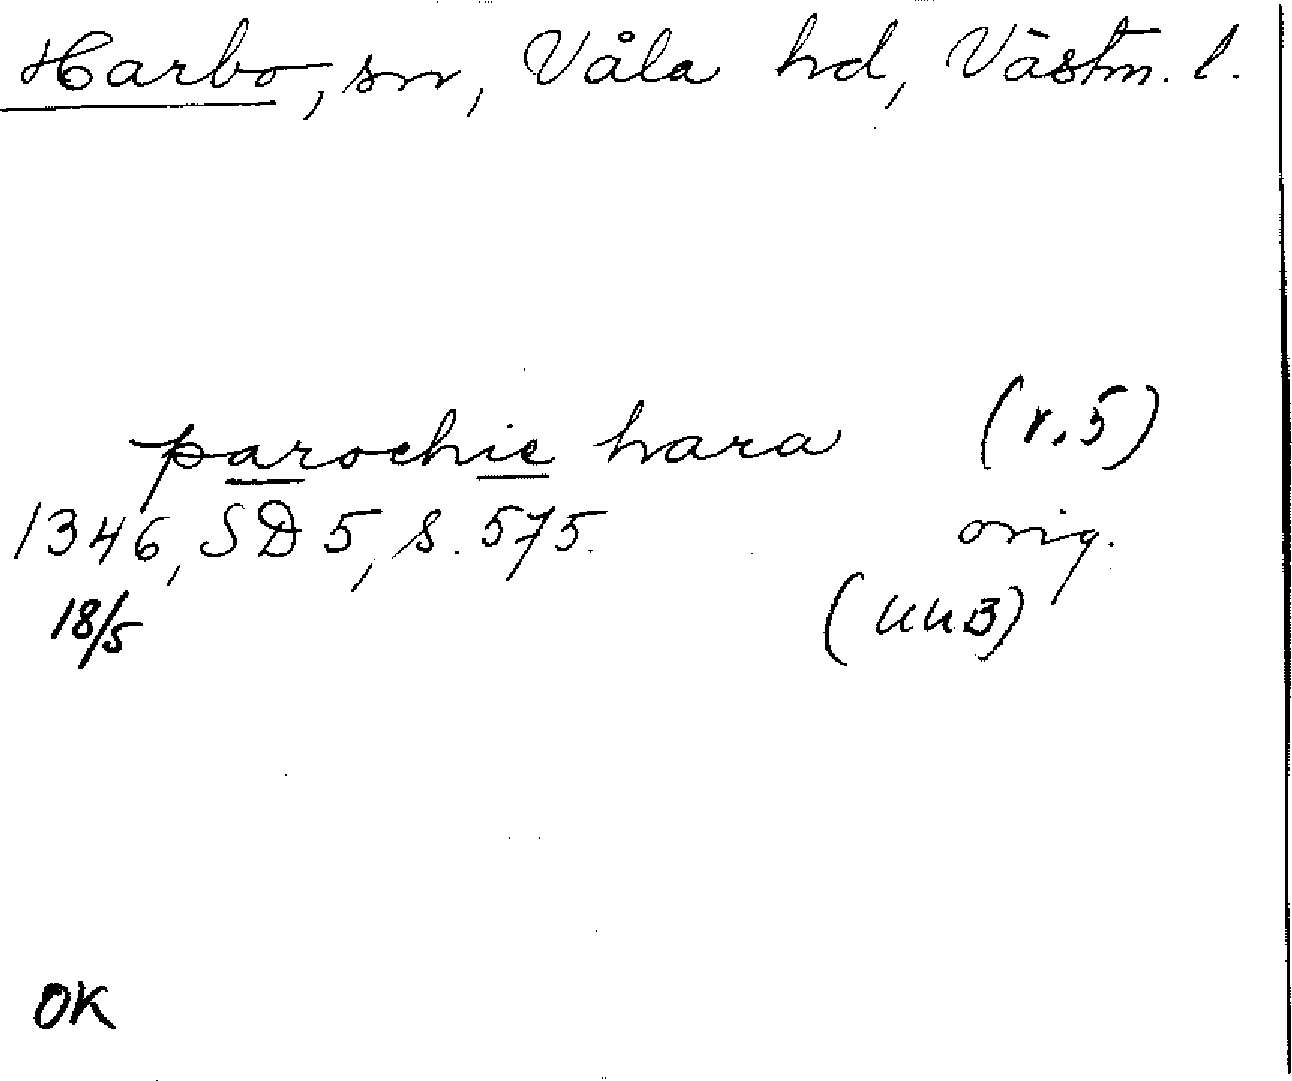 Harbo, sn, Våla hd, Västm. l.
parochie hara (r.5)
1346, SD 5, s. 575. orig.
18/5 (UUB)
OK